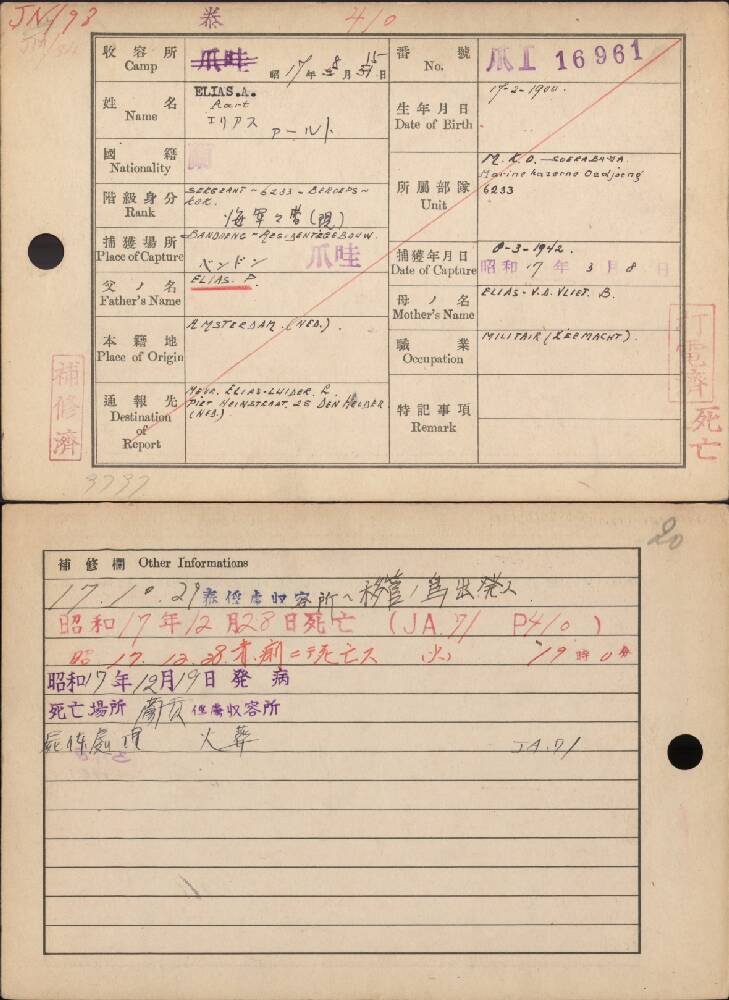 JN/93
泰
410
收容所
Camp
爪哇
昭17年8月15日
番號
No.
爪I 16961
姓名
Name
ELIAS.A.
Aart
エリアス アールト
生年月日
Date of Birth
17-2-1900.
國籍
Nationality
蘭
階級身分
Rank
SERGEANT-6233-BEROEPS-
KOK.
所屬部隊
Unit
M.K.O.-SOERABAJA.
Marinekazerne Oedjoeng
6233
捕獲場所
Place of Capture
BANDOENG-RESIDENTIEGEBOUW.
ベンドン
爪哇
捕獲年月日
Date of Capture
8-3-1942.
昭和17年3月8日
父ノ名
Father's Name
ELIAS. P.
母ノ名
Mother's Name
ELIAS-V.D.VLIET. B.
本籍地
Place of Origin
AMSTERDAM.(NED.).
職業
Occupation
MILITAIR (ZEEMACHT).
通報先
Destination of Report
MEVR. ELIAS-LUIDER. C.
PIET HEINSTRAAT. 25 DEN HELDER.
(NED.)
特記事項
Remark
補修濟
打電濟
死亡
3737
20
補修欄 Other Informations
17.10.29 泰俘虜収容所ヘ移管ノ為出発ス
昭和17年12月28日死亡 (JA.71 P410)
昭17.12.28.
死亡ス
19時0分
昭和17年12月19日発病
死亡場所
俘虜収容所
屍体處理 火葬
JA.71